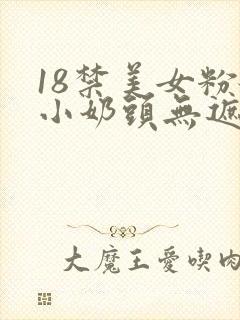 18禁美女粉
小奶頭無遮
大魔王愛喫肉